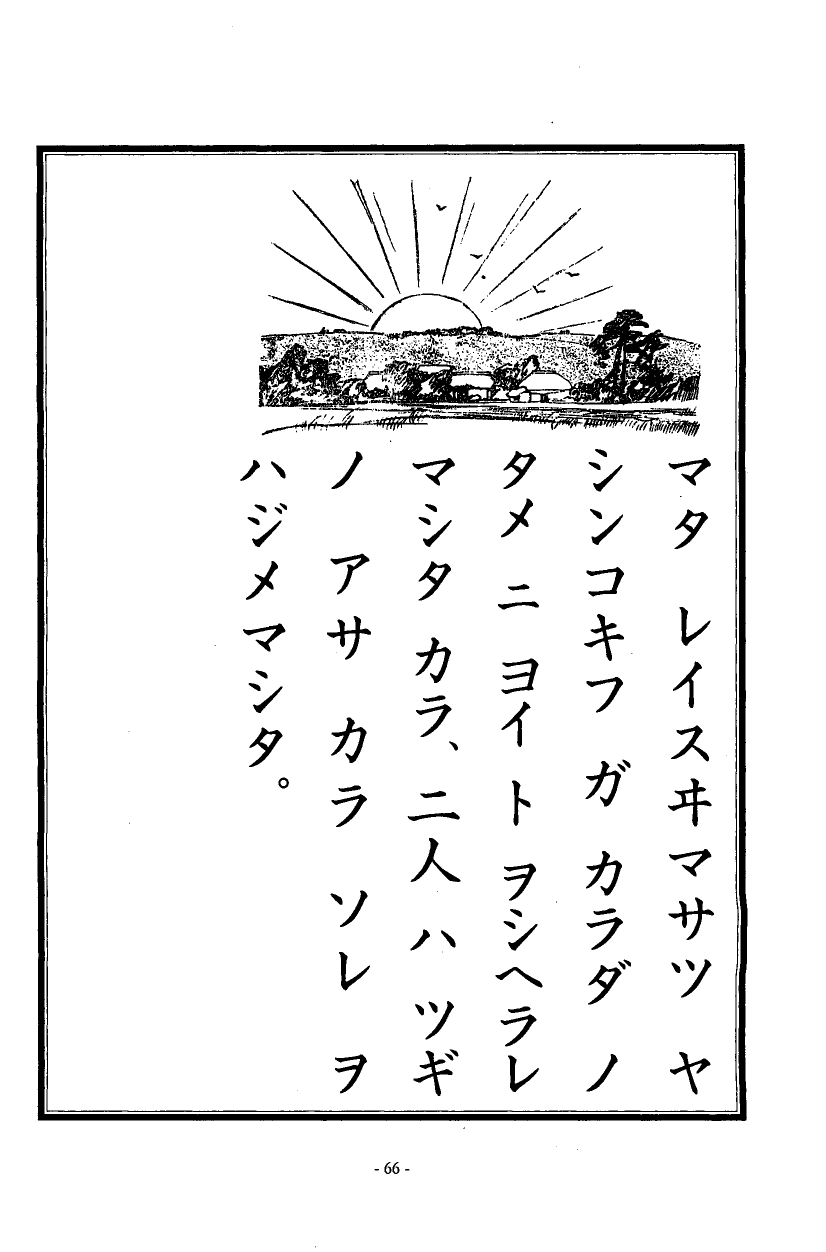 マタ レイスヰマサツ ヤ
シンコキフ ガ カラダ ノ
タメ ニ ヨイ ト ヲシヘラレ
マシタ カラ、二人 ハ ツギ
ノ アサ カラ ソレ ヲ
ハジメマシタ。
- 66 -